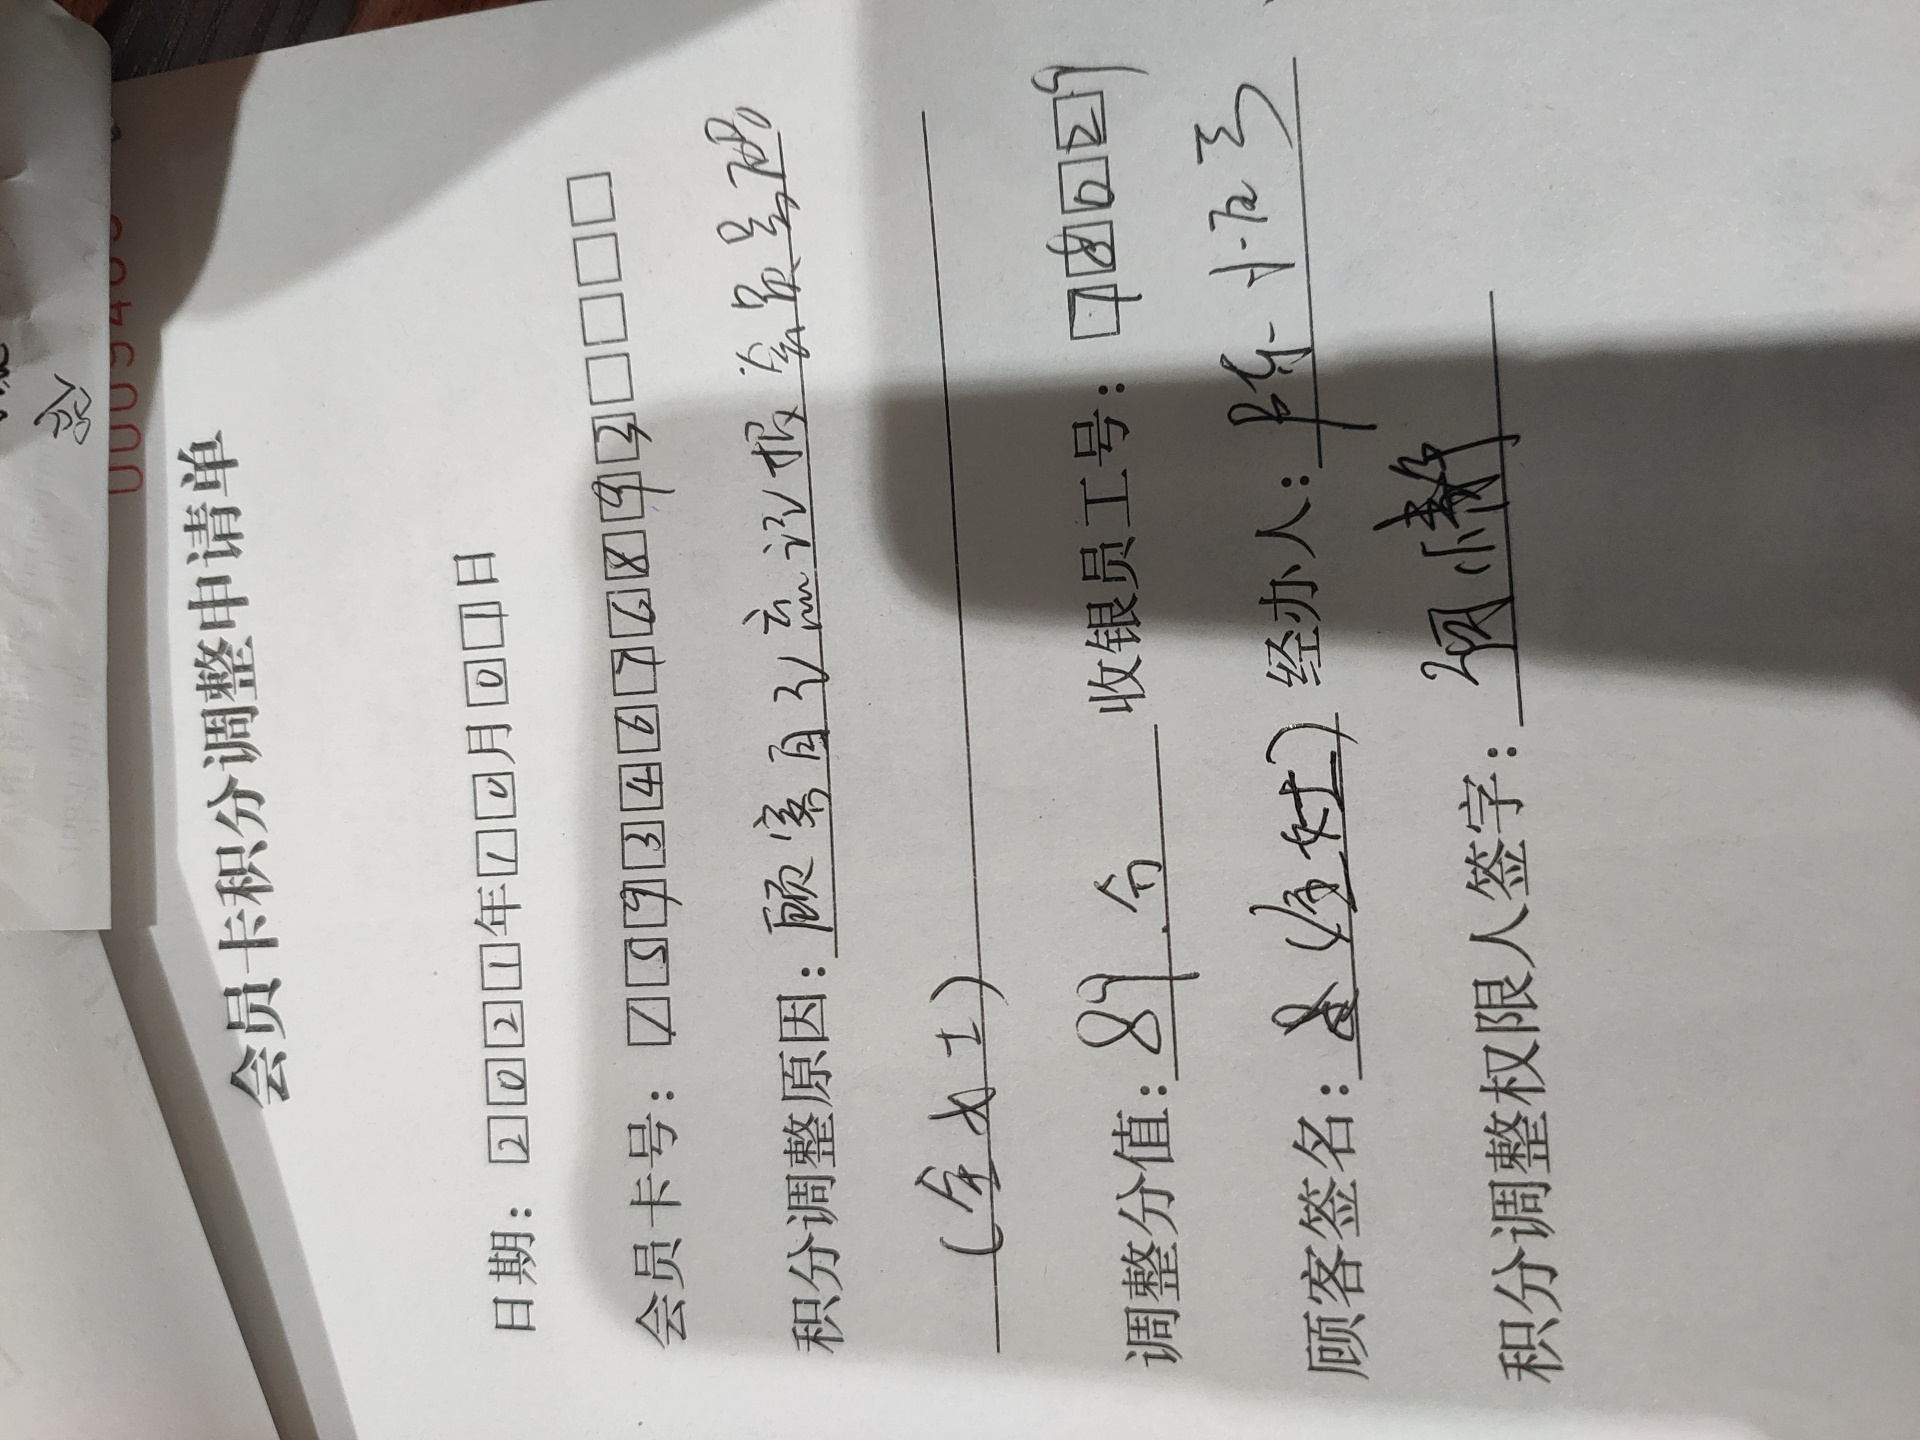 会员卡积分调整申请单
日期：2021年12月01日
会员卡号：15934676893
积分调整原因：顾客自己忘记报会员号码
（女士）
调整分值：89分 收银员工号：78029
顾客签名： 经办人：陈小
积分调整权限人签字：